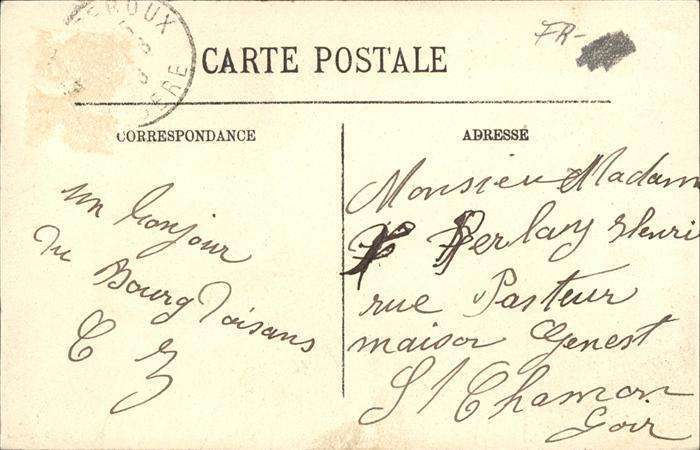 EROUX
ÈRE
FR-
CARTE POSTALE
CORRESPONDANCE
ADRESSE
un bonjour
du Bourg d'oisans
C Z
Monsieu Madam
Perlay Henri
rue Pasteur
maison Genest
St Chamon
Loir